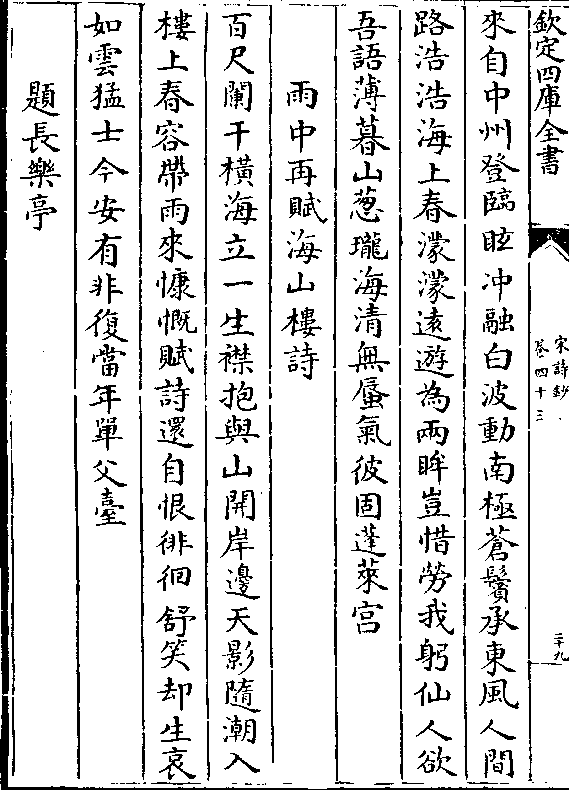 欽定四庫全書
宋詩鈔
卷四十三
二十九
來自中州登臨眩冲融白波動南極蒼鬢承東風人間
路浩浩海上春濛濛逺遊為兩眸豈惜勞我躬仙人欲
吾語薄暮山葱瓏海清無蜃氣彼固蓬萊宫
雨中再賦海山樓詩
百尺闌干橫海立一生襟抱與山開岸邊天影隨潮入
樓上春容帶雨來慷慨賦詩還自恨徘徊舒笑却生哀
如雲猛士今安有非復當年單父臺
題長樂亭